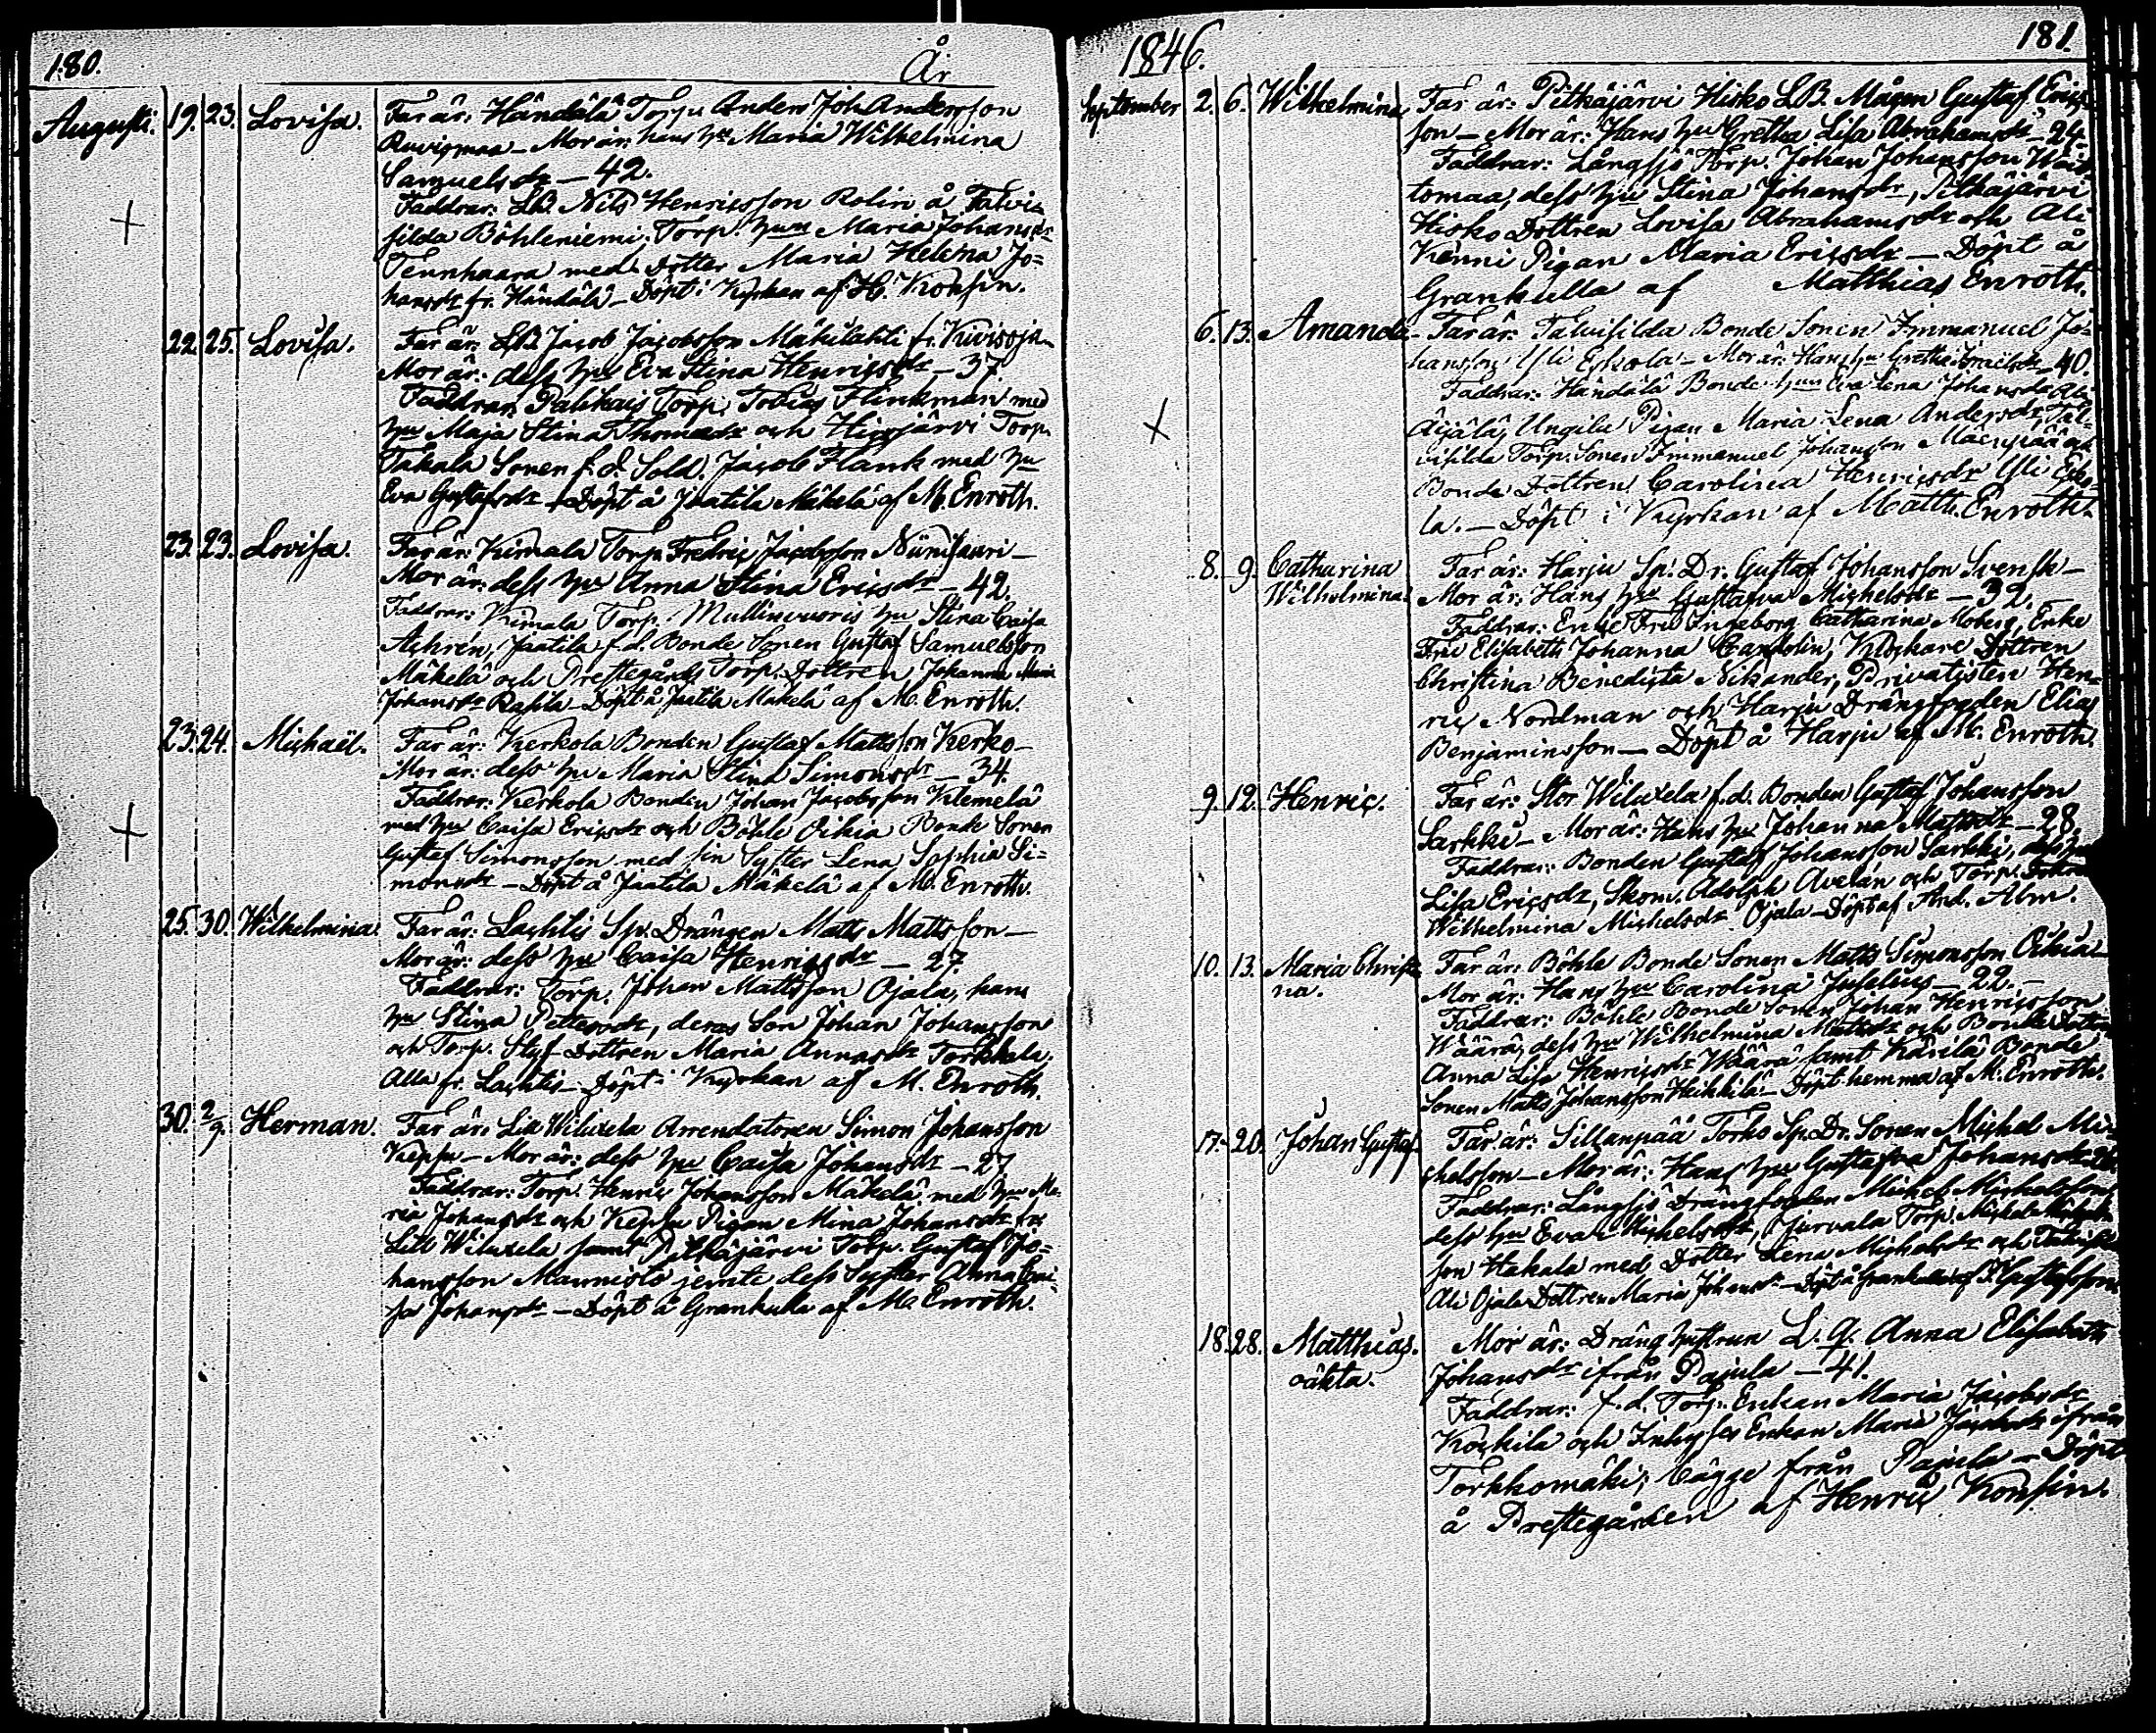 180. År
Augusti. 19. 23. Lovisa. Far är, Händälä Torp. Anders Joh Andersson
Ruvigmaa – Mor är: hans hu Maria Wilhelmina
Samuelsdr – 42.
Faddrar: LB. Nils Henricsson Rolin å Talvi-
silda Böhleniemi, Torp. hun Maria Johansdr
Tennhaara med Dotter Maria Helena Jo=
hansdr fr. Händälä – Döpt i Kyrkan af H. Konsin.
22. 25. Lovisa. Far är: LB Jacob Jacobsson Mäkilahti fr. Kivisoja
Mor är: dess hu Eva Stina Henricsdr – 37.
Faddrar: Palikais Torp. Tobias Flinkman med
hu Maja Stina Thomasdr och Hirsjärvi Torp.
Takala Sonen f.d. Sold. Jacob Flank med hu
Eva Gustafsdr – Döpt å Jaatila Mäkelä af M. Enroth.
23. 23. Lovisa. Far är: Kimala Torp. Fredric Jacobsson Niinisauri –
Mor är: dess hu Anna Stina Ericsdr – 42.
Faddrar: Kimala Torp. Mullinvuoris hu Stina Caisa
Achrén, Jaatila f.d. Bonde Sonen Gustaf Samuelsson
Mäkelä och Prestegårds Torp. Dottren Johanna
Johansdr Rapila – Döpt å Jaatila Mäkelä af M. Enroth.
23. 24. Michaël. Far är: Kerkola Bonden Gustaf Mattsson Kerko –
Mor är: dess hu Maria Stina Simonsdr – 34.
Faddrar: Kerkola Bonden Johan Jacobsson Klemelä
med hu Caisa Ericsdr och Böhle Oikia Bonde Sonen
Gustaf Simonsson med sin Syster Lena Sophia Si=
monsdr – Döpt å Jaatila Mäkelä af M. Enroth.
25. 30. Wilhelmina. Far är: Lachtis Sp. Drängen Matts Mattsson –
Mor är: dess hu Caisa Henricsdr – 27.
Faddrar: Torp. Johan Mattsson Ojala, hans
hu Stina Pettersdr, deras Son Johan Johansson
och Torp. Styf Dottren Maria Annasdr Torkkala,
Alla fr. Lachtis – Döpt i Kyrkan af M. Enroth.
30. 2/9. Herman. Far är: Lill Wiluxela Arrendatoren Simon Johansson
Keppu – Mor är: dess hu Caisa Johansdr – 27
Faddrar: Torp. Henric Johansson Mäkelä med hu Ma-
ria Johansdr och Keppu Pigan Mina Johansdr fr.
Lill Wiluxela samt Pitkäjärvi Torp. Gustaf Jo=
hansson Mannistö jemte dess Syster Anna Cai-
sa Johansdr – Döpt å Grankulla af M. Enroth.
1846. 181.
September 2. 6. Wilhelmina Far är: Pitkäjärvi Hisko LB. Mågen Gustaf Erics-
son – Mor är: Hans hu Gretha Lisa Abrahamsdr – 24.
Faddrar: Långsjö Torp. Johan Johansson Wais-
tomaa, dess hu Stina Johansdr, Pitkäjärvi
Hisko Dottren Lovisa Abrahamsdr och Ali
Kenni Pigan Maria Ericsdr – Döpt å
Grankulla af Matthias Enroth.
6. 13. Amanda. Far är: Talvisilda Bonde Sonen Immanuel Jo-
hansson Yli Eskola – Mor är: Hans hu Gretha Israelsdr – 40.
Faddrar: Händälä Bonde hun Eva Lena Johansdr Ali
Äijälä, Ungila Pigan Maria Lena Andersdr Tal-
visilda Torp. Sonen Immanuel Johansson Mäenpää och
Bonde Dottren Carolina Henricsdr Yli Esko-
la. – Döpt i Kyrkan af Matth. Enroth.
8. 9. Catharina Far är: Harju Sp. Dr. Gustaf Johansson Svensk –
Wilhelmina. Mor är: Hans hu Gustafva Michelsdr – 32. –
Faddrar: Enke Fru Ingeborg Catharina Moberg, Enke
Fru Elisabeth Johanna Candolin, Klockare Dottren
Christina Benedicta Nikander, Privatisten Hen-
ric Nordman och Harju Drängfogden Elias
Benjaminsson – Döpt å Harju af M. Enroth.
9. 12. Henric. Far är: Stor Wiluxela f.d. Bonden Gustaf Johansson
Sarkki – Mor är: Hans hu Johanna Mattsdr – 28.
Faddrar: Bonden Gustaf Johansson Sarkki, dess hu
Lisa Ericsdr, Skom. Adolph Avelan och Torp. Dottren
Wilhelmina Michelsdr Ojala – Döpt af And. Alm.
10. 13. Maria Christi- Far är: Böhle Bonde Sonen Matts Simonsson Oikia –
na. Mor är: Hans hu Carolina Juselius – 22. –
Faddrar: Böhle Bonde Sonen Johan Henricsson
Wäärä, dess hu Wilhelmina Mattsdr och Bonde Dottren
Anna Lisa Henricsdr Wäärä samt Kärilä Bonde
Sonen Matts Johansson Heikkilä – Döpt hemma af M. Enroth.
17. 20. Johan Gustaf. Far är: Sillanpää Torko Sp. Dr. Sonen Michel Mi-
chelsson – Mor är: Hans hu Gustafva Johansdr
Faddrar: Långsjö Drängfogden Michel Michelsson
dess hu Eva Michelsdr, Järvala Torp. Michel
son Hakala med Dotter Lena Michelsdr och
Ali Ojala Dottren Maria Johansdr – Döpt å Grankulla af Gustafsson
18. 28. Matthias. Mor är: Dräng hustrun L. q. Anna Elisabeth
oäkta. Johansdr ifrån Pajula – 41.
Faddrar: f.d. Torp. Enkan Maria Jacobsdr
Kockila och Inhyses Enkan Maria Jacobsdr ifrån
Torkkomäki; bägge från Pajula – Döpt
å Prestegården af Henric Konsin.